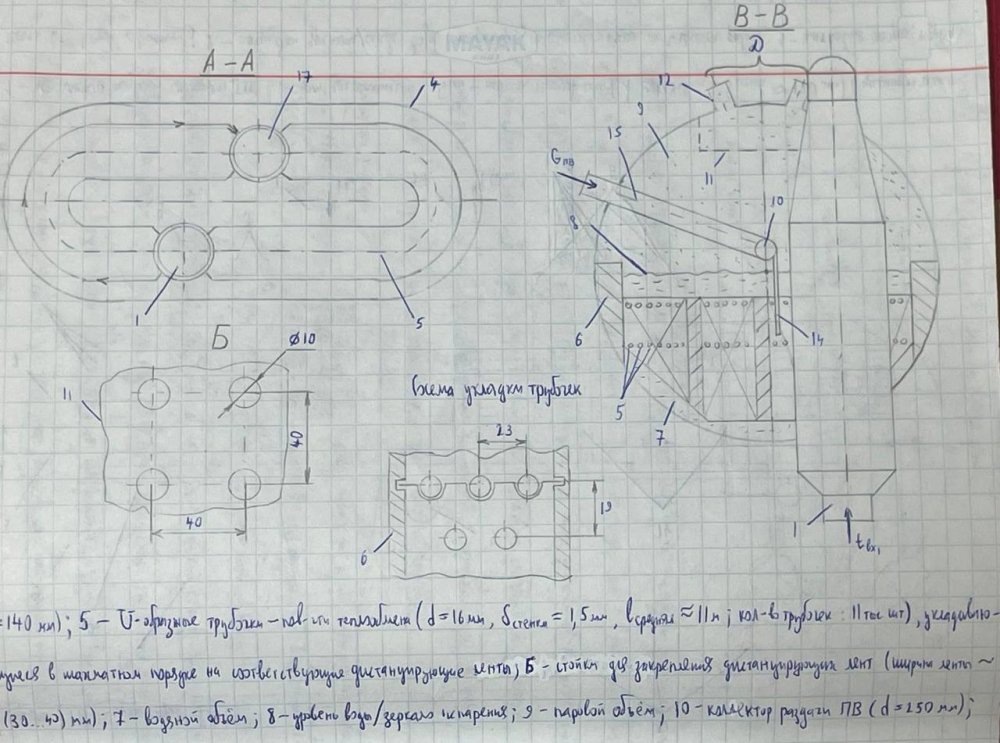 MAYAK
А–А
В–В
Д
17
4
12
9
15
Gпв
11
10
8
1
5
6
14
Б
⌀10
11
40
40
5
7
Схема укладки трубчек
23
19
6
1
tвх₁
=140 мм); 5 – U-образные трубочки – пов-сти теплообмена (d=16мм, δстенки = 1,5мм, lсредняя ≈ 11м; кол-в трубчек: 11 тыс шт), укладываю-
щиеся в шахматном порядке на соответствующие дистанцирующие ленты; Б – стойки для закрепления дистанцирующих лент (ширина ленты ~
(30...40) мм); 7 – водяной объём; 8 – уровень воды/зеркало испарения; 9 – паровой объём; 10 – коллектор раздачи ПВ (d=250 мм);